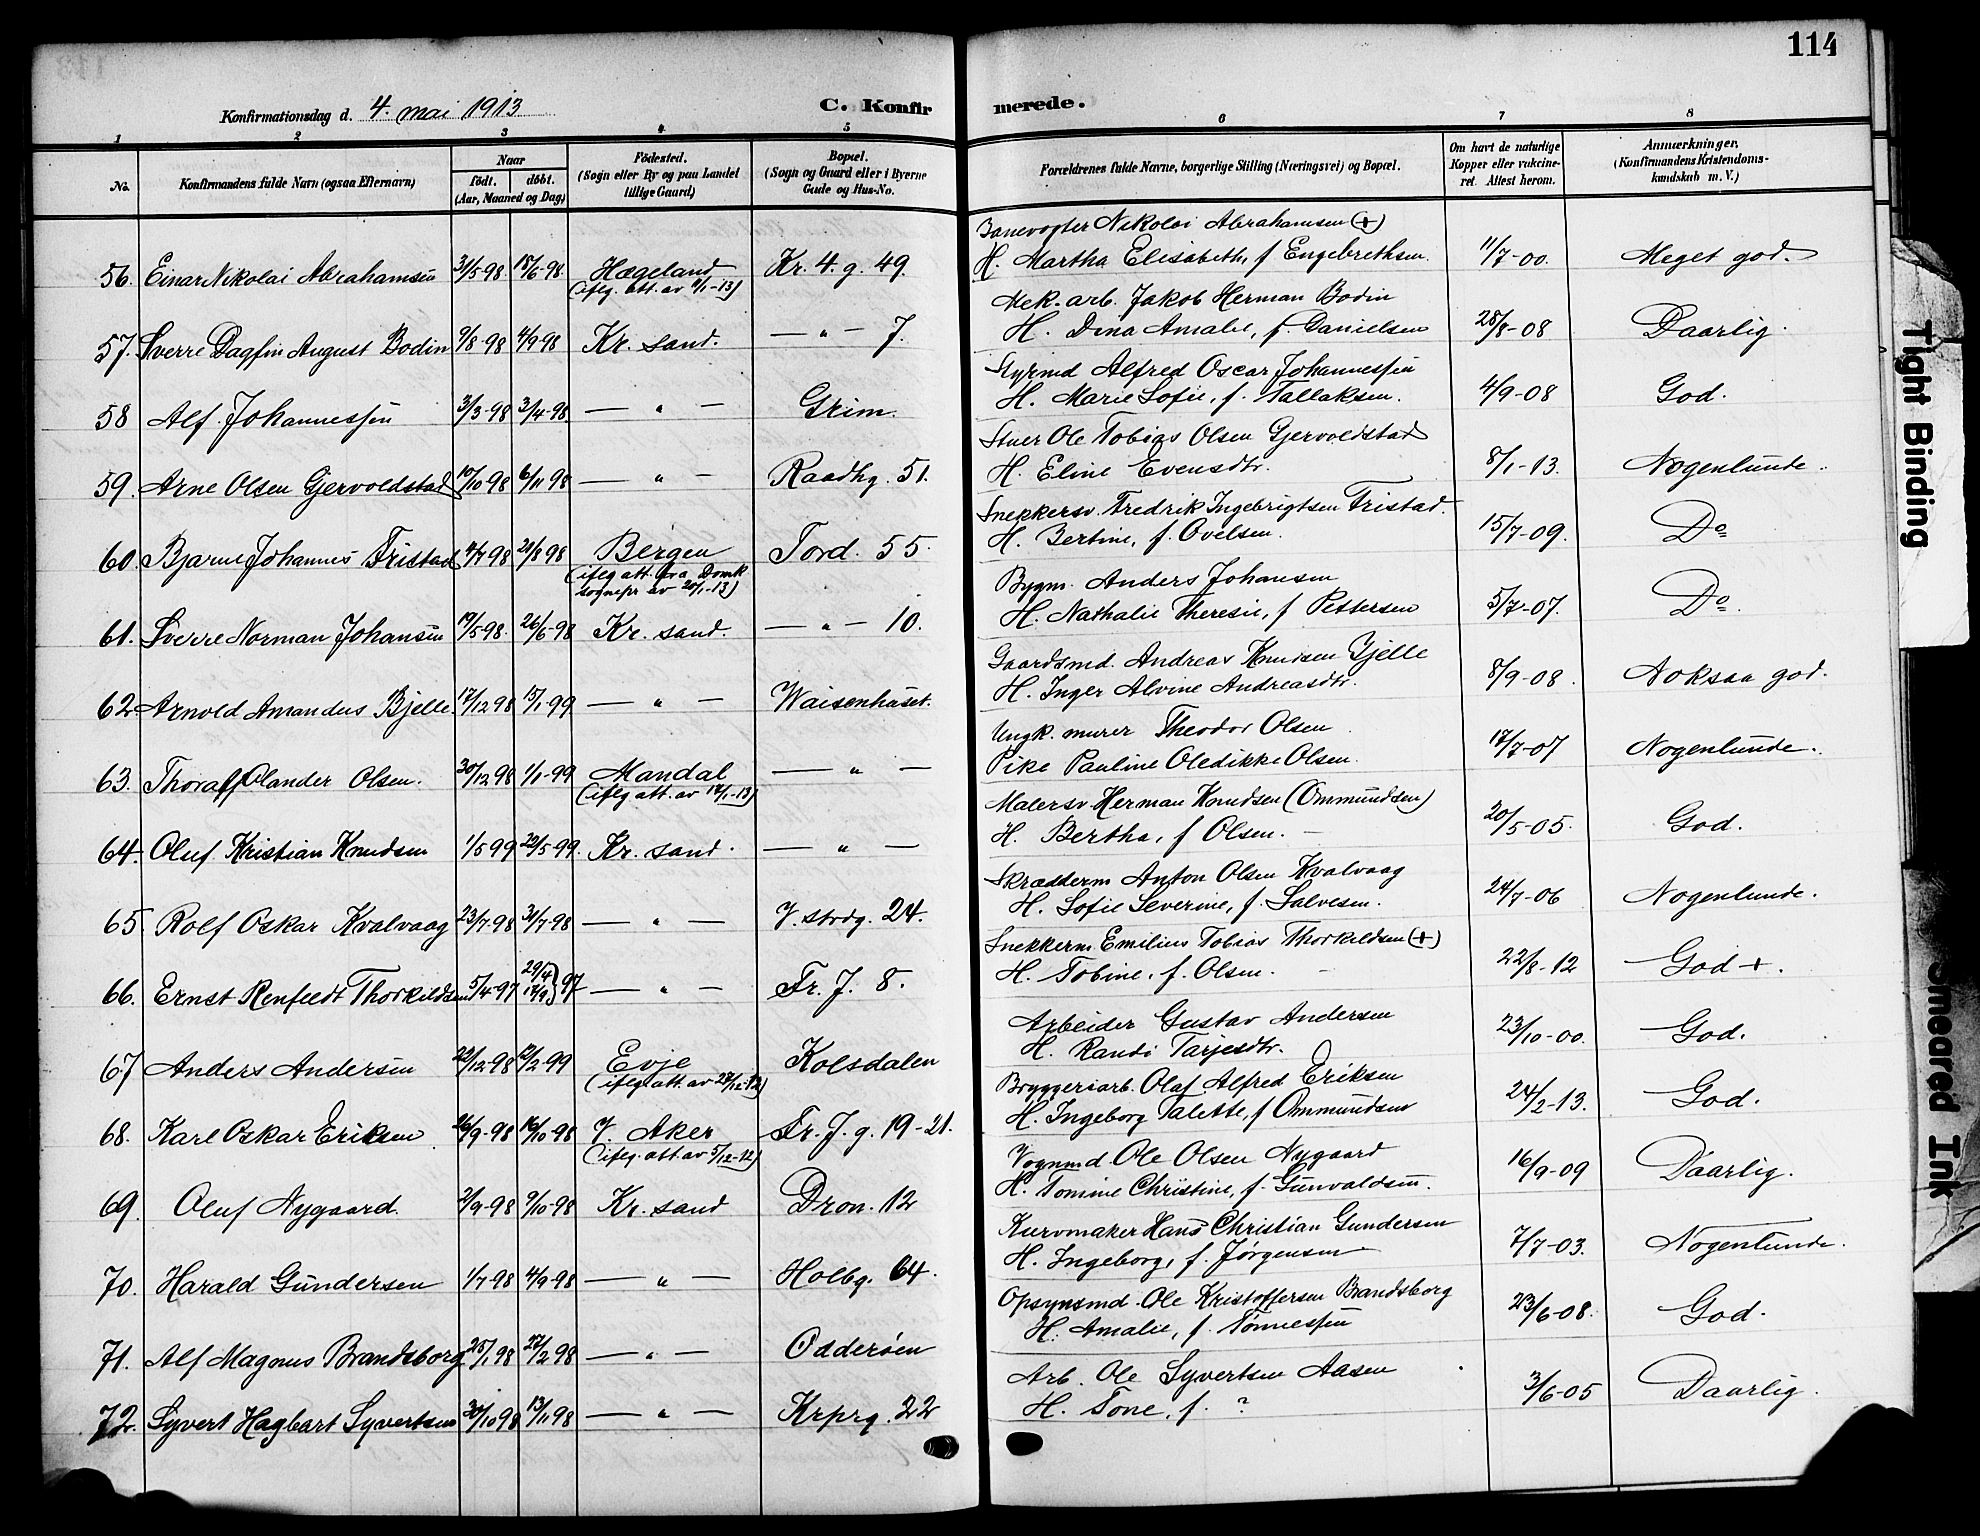 114
Konfirmationsdag d. 4. mai 1913
C. Konfirmerede.
1 2 3 4 5 6 7 8
No.
Konfirmandens fulde Navn (ogsaa Efternavn)
Naar
født. døbt.
(Aar, Maaned og Dag)
Fødested.
(Sogn eller By og paa Landet
tillige Gaard)
Bopæl.
(Sogn og Gaard eller i Byerne
Gade og Hus-No.
Forældrenes fulde Navne, borgerlige Stilling (Næringsvei) og Bopæl.
Om havt de naturlige
Kopper eller vakcine-
ret. Attest herom.
Anmærkninger.
(Konfirmandens Kristendoms-
kundskab m. V.)
Banevogter Nikolai Abrahamsen (+)
56. Einar Nikolai Abrahamsen 31/5-98. 18/6-98. Hægeland Kr. 4. g. 49. H. Martha Elisabeth, f Engebrethsen. 11/7-00. Meget god.
(ifлg. att. av 11/1-13)
Mek. arb. Jakob Herman Bodin
57. Sverre Dagfin August Bodin 9/8-98 4/9-98 Kr. sand. — " — 7. H. Dina Amalie, f. Danielsen 28/8-08 Daarlig.
Styrmd Alfred Oscar Johannessen
58 Alf. Johannessen 3/3-98 3/4-98. — " — Grim. H. Marie Sofie, f. Tallaksen. 4/9-08 God.
Stuer Ole Tobias Olsen Gjervoldstad
59. Arne Olsen Gjervoldstad 10/10 98 6/11 98 — " — Raadhg. 51. H. Eline Evensdtr. 8/1-13. Nogenlunde.
Snekkersv. Fredrik Ingebrigtsen Fristad.
60. Bjarne Johannes Fristad 4/7 98 21/8 98 Bergen Tord. 55. H. Bertine, f. Ovelsen. 15/7-09. Do
(ifлg att. fra Domk
sognepr av 20/1-13)
Bygm. Anders Johansen
61. Sverre Norman Johansen 19/5-98. 26/6-98 Kr. sand. — " — 10. H. Nathalie Theresie, f Pettersen 5/7-07. Do.
Gaardsmd. Andreas Knudsen Bjelle
62. Arnold Amandus Bjelle. 17/12 98 15/1-99 — " — Waisenhuset. H. Inger Alvine Andreasdtr. 8/9-08. Noksaa god.
Ungk. murer Theodor Olsen
63. Thoralf Olander Olsen. 30/12 98 1/1-99 Mandal — " — Pike Pauline Oledikke Olsen. 17/7-07 Nogenlunde.
(ifлg att. av 14/1-13)
Malersv. Herman Knudsen (Ommundsen)
64. Oluf Kristian Knudsen 1/5 99 22/5-99. Kr. sand. — " — H. Bertha, f Olsen. 20/5-05. God.
Skrædderm Anton Olsen Kvalvaag
65 Rolf Oskar Kvalvaag 23/7-98 31/7-98 — " — V. strdg. 24. H. Sofie Severine, f. Salvesen. 24/7-06 Nogenlunde.
Snekkerm. Emilius Tobias Thorkildsen (+)
66. Ernst Renfeldt Thorkildsen 5/4-97 29/4 97 — " — Fr. J. 8. H. Tobine. f. Olsen. 22/8-12 God +.
12/9
Arbeider Gustav Andersen
67 Anders Andersen 22/12-98 12/2-99 Evje Kolsdalen H. Randi Tarjesdtr. 23/10-00. God.
(ifлg att. av 28/12-12)
Bryggeriarb. Olaf Alfred Eriksen
68. Karl Oskar Eriksen 26/9-98 16/10-98 V. Aker Fr. J. g. 19-21. H. Ingeborg Talette, f Ommundsen 24/2-13. God.
(ifлg. att. av 5/12-12)
Vognmd. Ole Olsen Nygaard
69. Oluf Nygaard. 2/9-98 9/10-98 Kr. sand Dron. 12 H. Tomine Christine, f. Gunvaldsen. 16/9-09 Daarlig.
Kurvmaker Hans Christian Gundersen
70. Harald Gundersen 1/7-98 4/9-98 — " — Holbg. 64. H. Ingeborg, f. Jørgensen 7/7-03. Nogenlunde.
Opsynsmd. Ole Kristoffersen Brandsborg
71. Alf Magnus Brandsborg 25/1 98 27/2 98 — " — Odderøen H. Amalie, f. Tønnessen 23/6-08. God.
Arb. Ole Syvertsen Aasen
72. Syvert Hagbart Syvertsen 30/10 98 13/11 98 — " — Krprg. 22 H. Tone, f. ? 3/6-05 Daarlig.
Tight Binding
Smeared Ink